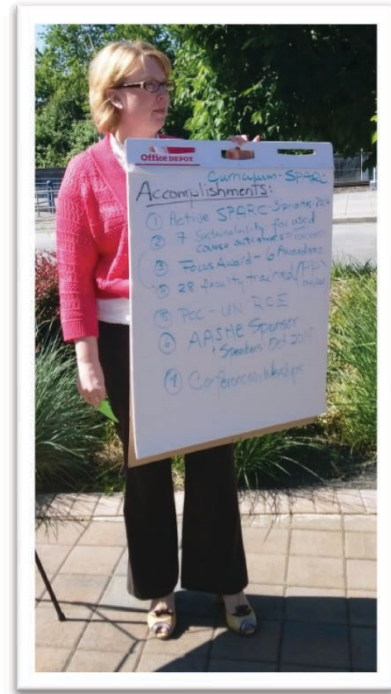 Office DEPOT
Curriculum - SPARC
Accomplishments:
① Active SPARC - Sprintfo 2014
② 7 Sustainability focused
course activities
③ Focus Award - 6 Awardees
③ 28 faculty trained/PPP
⑤ PCC - UN RCE
⑥ AASHE Sponsor
+ Speakers Oct 2014
⑦ Conferences